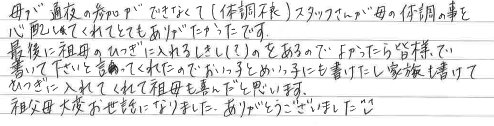 母が通夜の参加ができなくて(体調不良)スタッフさんが母の体調の事を
心配してくれてとてもありがたかったです。
最後に祖母のひつぎに入れるしきし(?)のをあるのでよかったら皆様で
書いて下さいと言ってくれたのでおいっ子とめいっ子にも書けたし家族も書けて
ひつぎに入れてくれて祖母も喜んだと思います。
祖父母大変お世話になりました。ありがとうございました